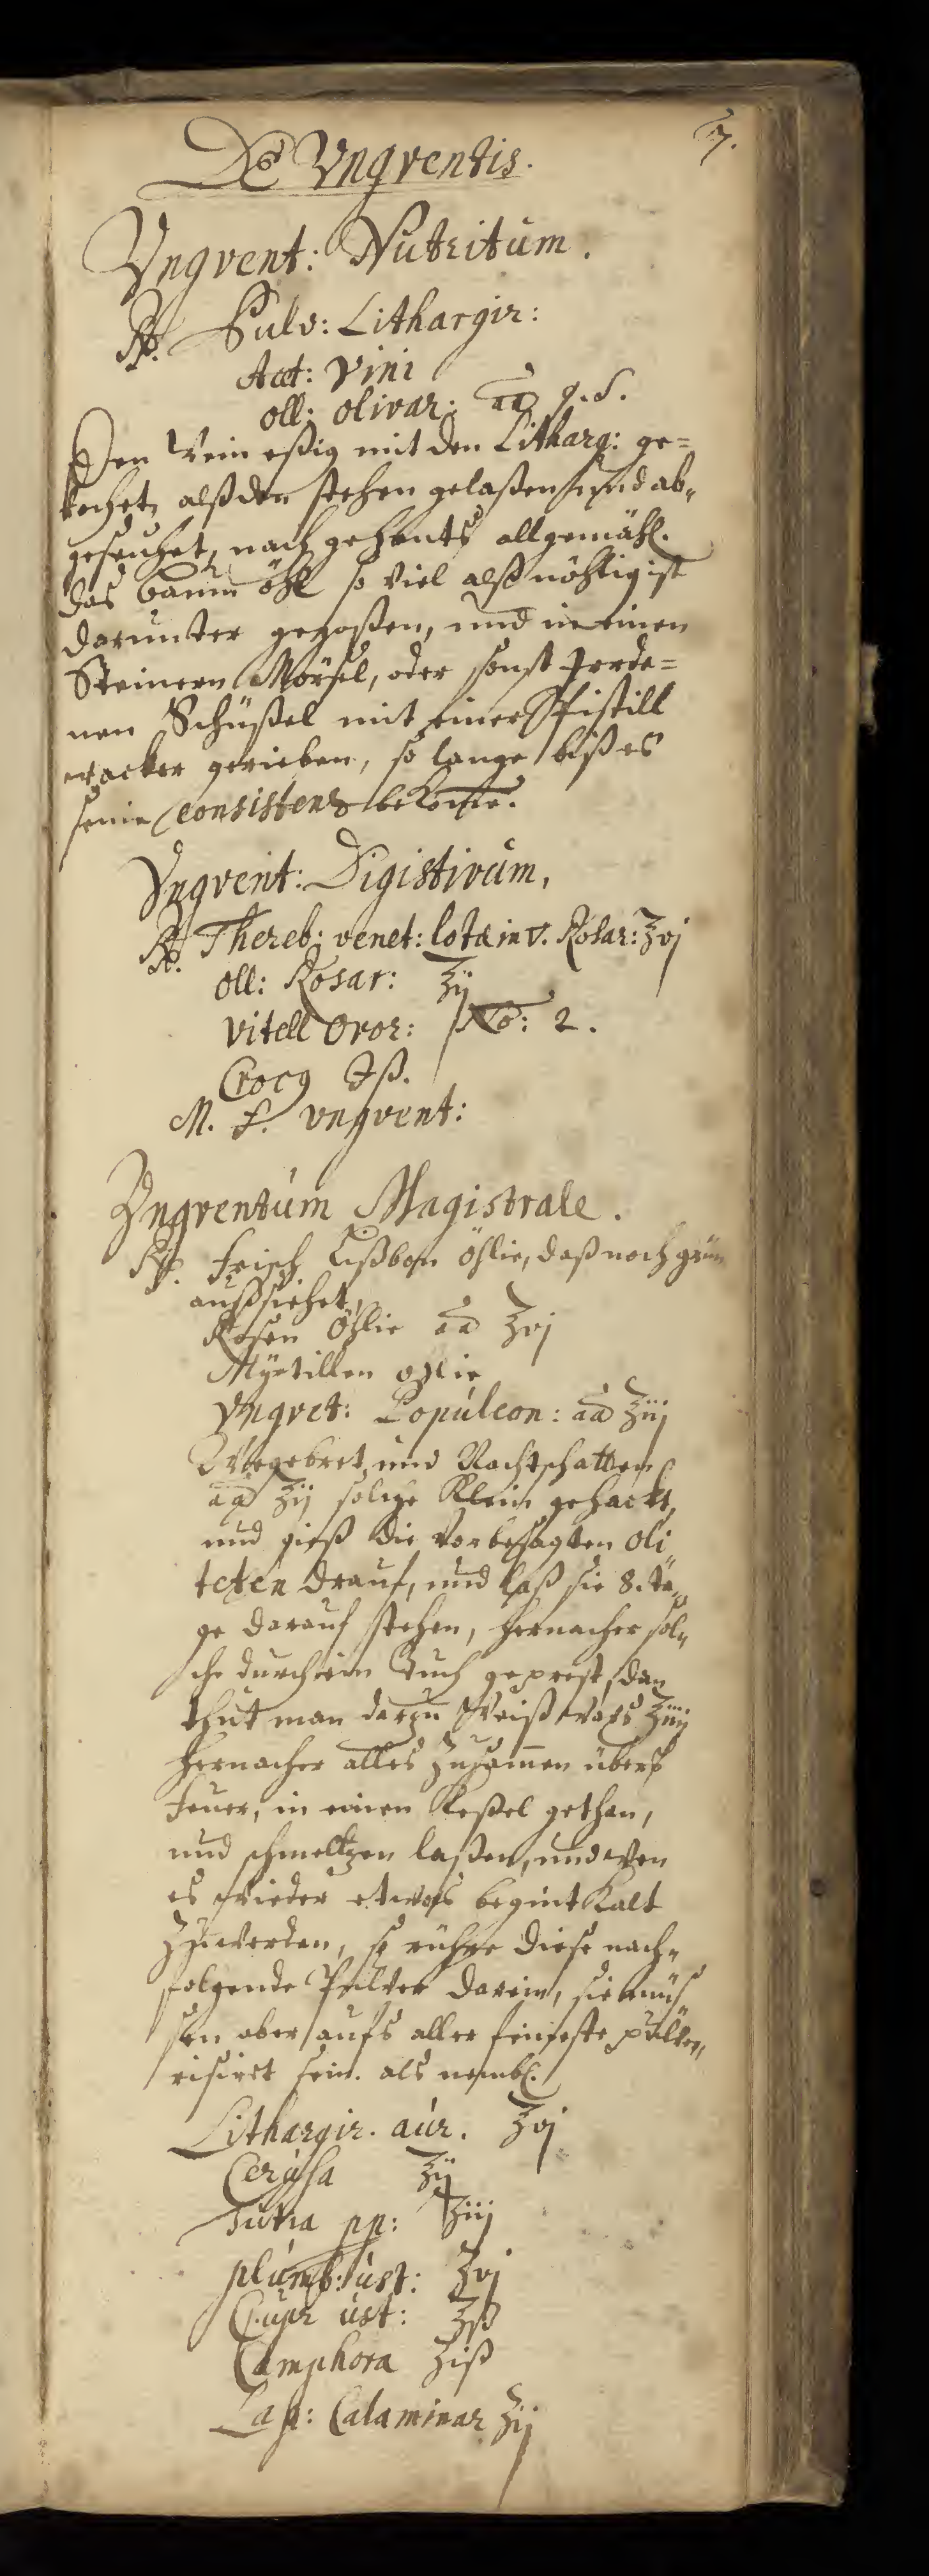 7.
De Ungventis.
Ungvent: Nutritum.
℞. Pulv: Lithargir:
Acet: Vini
oll: olivar: aa q.s.
Den Wein eßig mit den Litharg: ge=
kochet, alßdan stehen gelaßen und ab,,
geseuhet, nach gehents allgemähl.
das baum öhl so viel alß nöhtig ist
darunter gegoßen, und in einen
Steinern Mörsel, oder sonst Irrde=
nen Schüßel mit einer Pistill
wacker gerieben, so lange biß es
seine consistens bekome.
Ungvent: Digistivum,
℞. Thereb: venet: lota in v. Rosar: ʒvj
oll: Rosar: ʒij
Vitell Ovor: No: 2.
Crocj ℈ß.
M. f. ungvent:
Ungventum Magistrale.
℞. Frisch Lißbon Öhlie, daß noch grün
außsiehet,
Rosen Öhlie aa ʒvj
Myrtillen ohlie
Ungvet: Populeon: aa ʒiij
Wegebret und Nachtschatten
aa ʒij solche Klein gehackt,
und gieß die Vorbesagten oli
teten drauf, und laß sie 8. ta,,
ge darauf stehen, hernacher sol,,
che durch ein Tuch geprest, dan
thut man darzu Weiß wax ʒiiij
hernacher alles Zusammen übers
Feuer, in einen Keßel gethan,
und schmeltzen laßen, und wen
es wieder etwas begint Kalt
Zu werden, so rühre diese nach,,
folgende Pulver darein, sie müs
sen aber aufs aller feineste pulve,,
risiret sein. als nembl.
Lithargir. aur. ʒvj
Cerussa ʒij
Tutia pp: ʒiij
plumb: ust: ʒvj
Cupr ust: ʒß
Camphora ʒiß
Lap: Calaminar ʒij